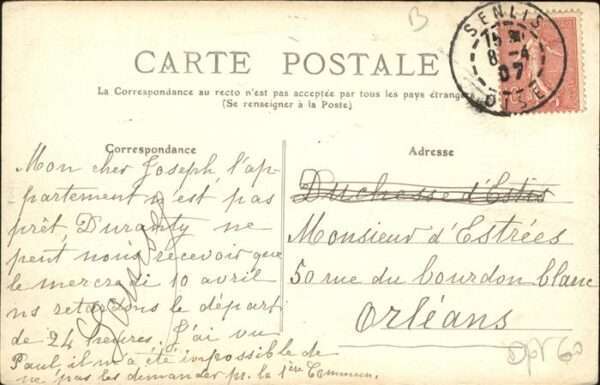 B
SENLIS
15
8-4
07
OISE
CARTE POSTALE
La Correspondance au recto n'est pas acceptée par tous les pays étrangers
(Se renseigner à la Poste)
Correspondance
Mon cher Joseph, l'ap-
partement n'est pas
prêt, Duranty ne
peut nous recevoir que
le mercredi 10 avril
ns retardons le départ
de 24 heures. J'ai vu
Paul, il m'a été impossible de
ne pas les demander pr. la 1ère Commun.
Adresse
Duchesse d'Estrées
Monsieur d'Estrées
50 rue du Bourdon blanc
Orléans
Dpt 60